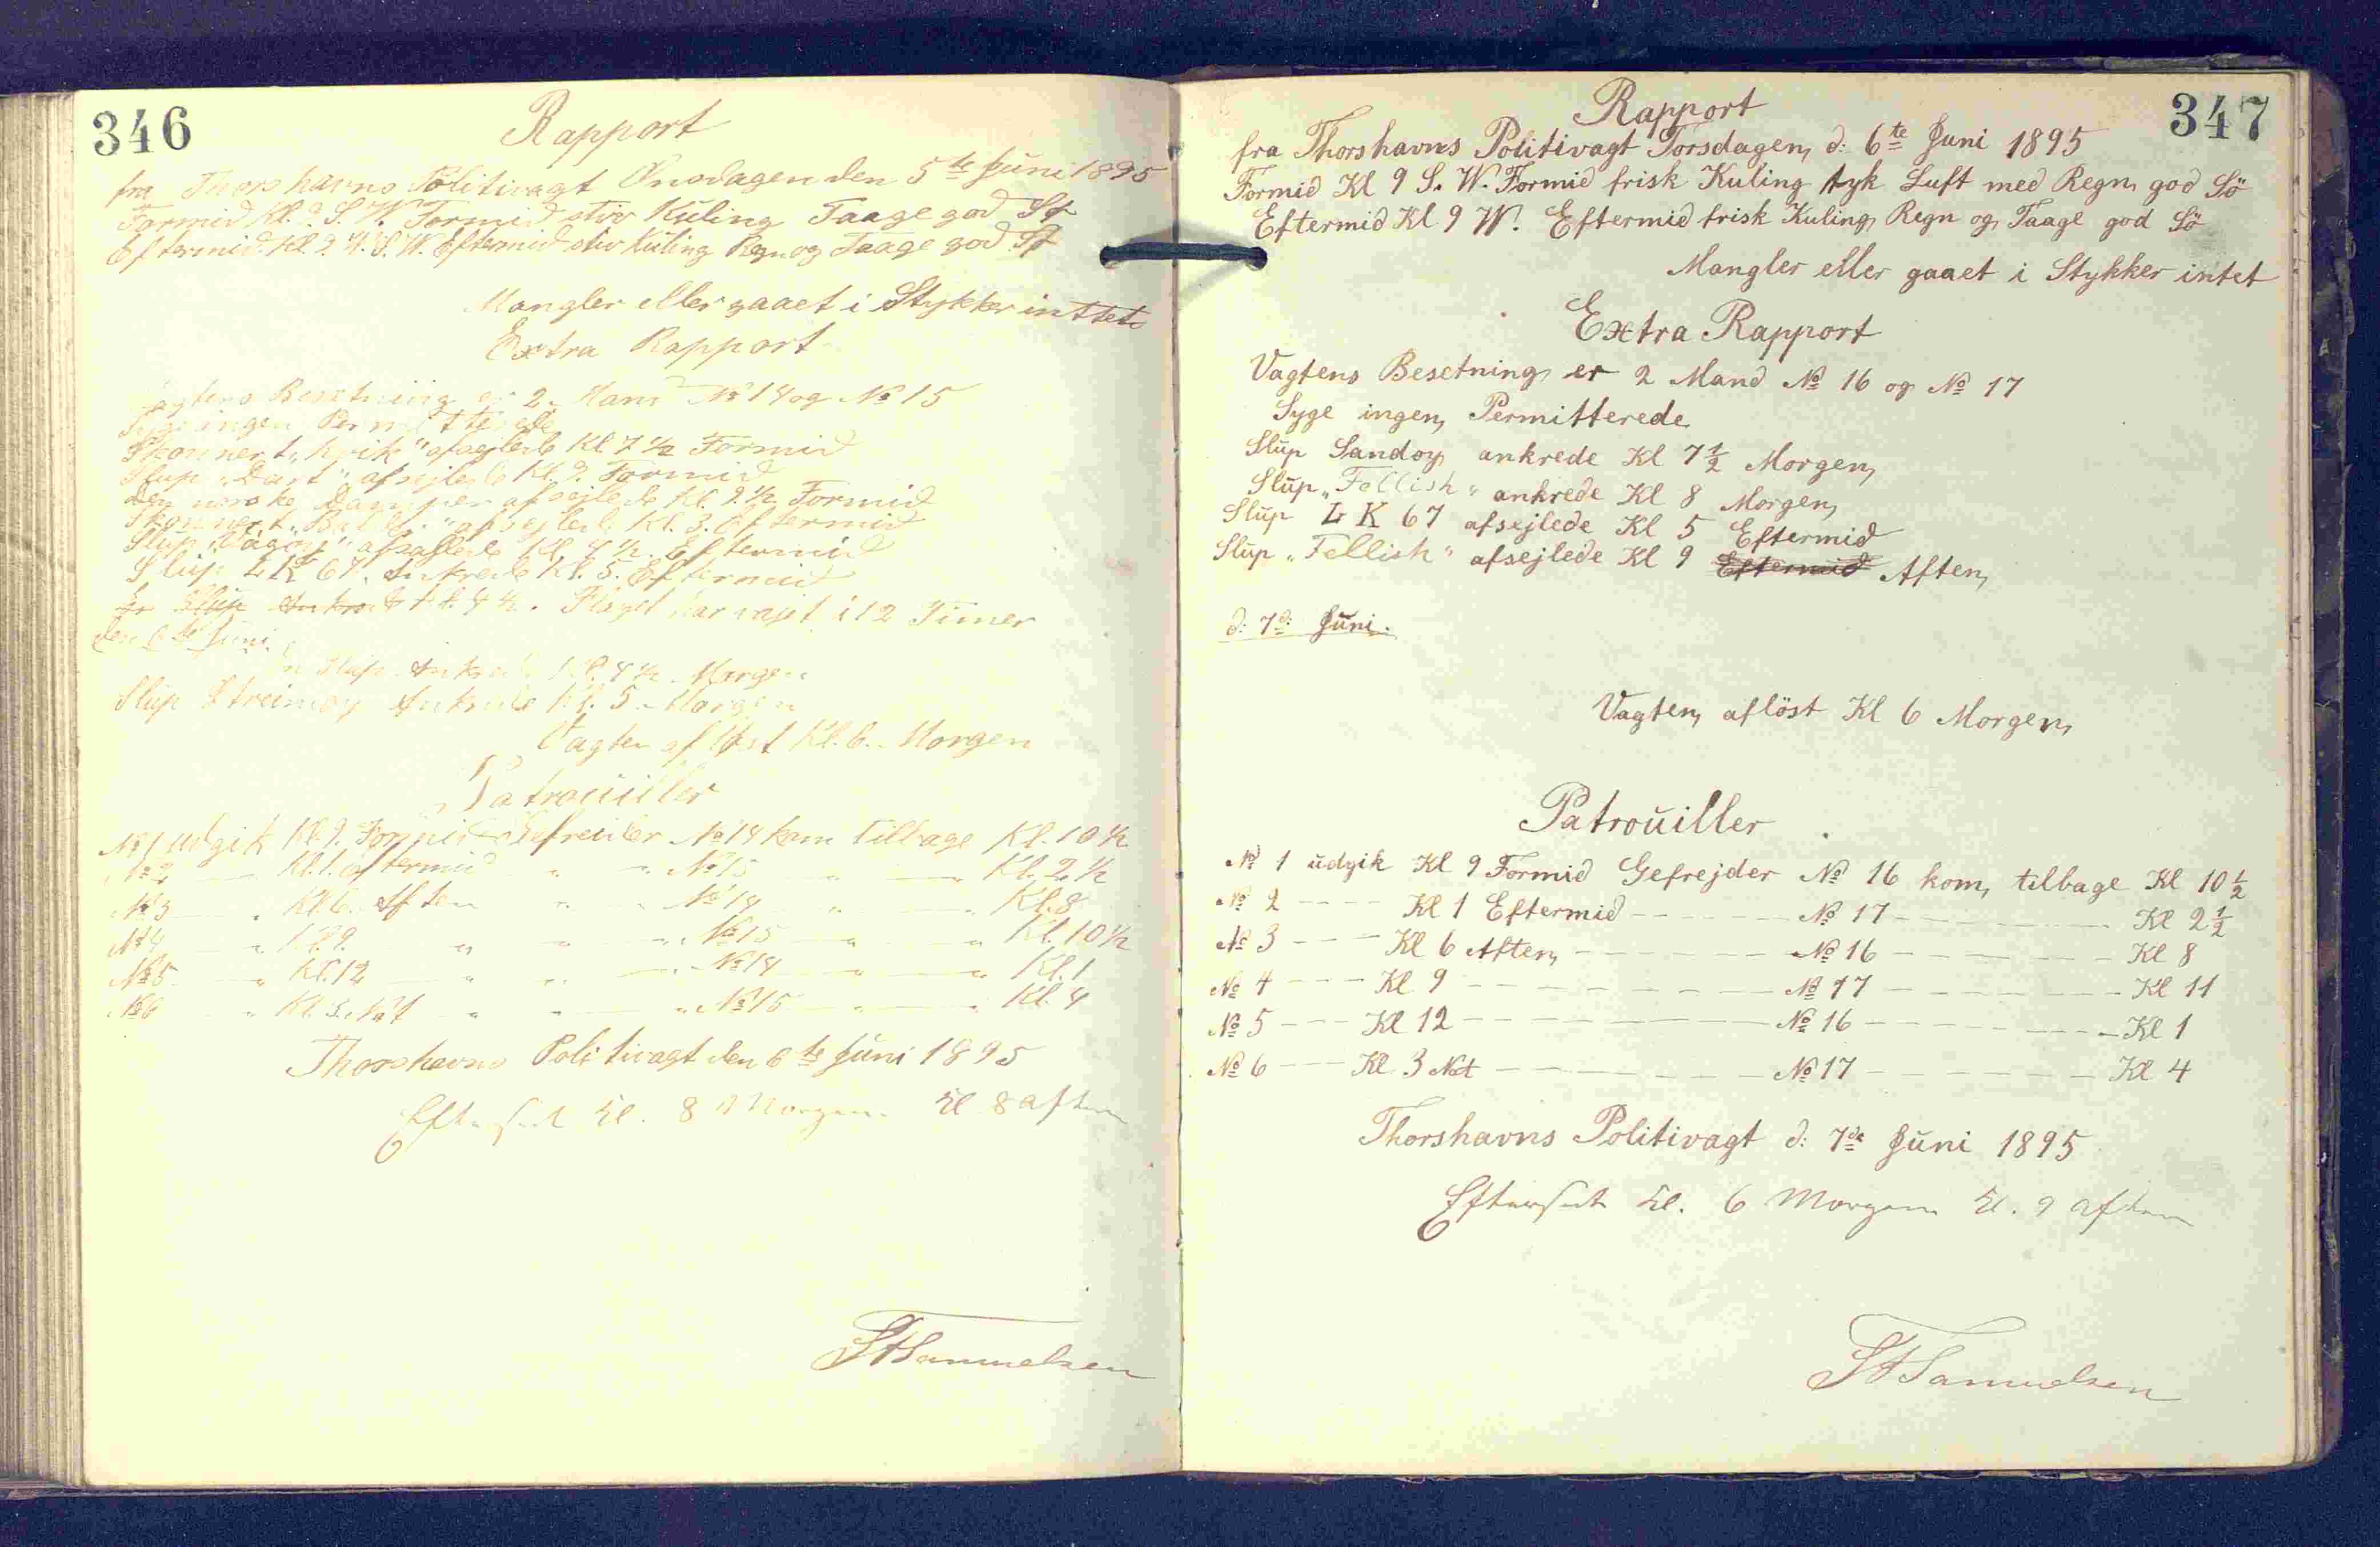 346
Rapport
fra Thorshavns Politivagt Onsdagen den 5te Juni 1895
Formid Kl. 9 S. W. Formid stiv Kuling Taage god Sø
Eftermid. Kl. 9. V. S. W. Eftermid stiv Kuling Regn og Taage god Sø
Mangler eller gaaet i Stykker inttet
Extra Rapport
Vagtens Besetning er 2. Mand No 14 og No 15
Syge ingen Permitterede
Skonnert " afsejlede Kl 7 1/2 Formid
Slup "Dart" afsejlede Kl. 9. Formid
Den norske Damper afsejlede Kl. 9. 1/2 Formid
Skonnert. " afsejlede Kl. 3. Eftermid
Slup "Vágoy" afsejlede Kl. 4 1/2. Eftermid
Slup LK 67. Ankrede Kl. 5. Eftermid
En Slup Ankrede Kl. 4 1/2. Flaget har vajet i 12 Timer
den 6te Juni
En Slup Ankrede Kl. 4 1/2. Morgen
Slup Streimoy Ankrede Kl. 5. Morgen
Vagten afløst Kl. 6. Morgen
Patrouiller
No 1 udgik Kl. 9. Formid Gefreider No 14 kom tilbage Kl. 10 1/2
No 2 — Kl. 1. Eftermid " " No 15 " — Kl. 2. 1/2
No 3 " Kl. 6. Aften " " No 14 " — Kl. 8
No 4 — " Kl. 9. " " — " No 15 — " — " Kl. 10 1/2
No 5 — " Kl. 12 — " " — " No 14 — " — " Kl. 1
No 6 " Kl. 3. Nat " " — " No 15 — " — " Kl. 4
Thorshavns Politivagt den 6te Juni 1895
Efterset Kl. 8 Morgen. Kl 8 aften
S Samuelsen
347
Rapport
fra Thorshavns Politivagt Torsdagen, d: 6te Juni 1895
Formid Kl 9 S. W. Formid frisk Kuling tyk Luft med Regn, god Sö
Eftermid Kl 9 W. Eftermid frisk Kuling, Regn og, Taage god Sö
Mangler eller gaaet i Stykker intet
Extra Rapport
Vagtens Besetning, er 2 Mand No 16 og No 17
Syge ingen, Permitterede
Slup Sandoy, ankrede Kl 7 1/2 Morgen,
Slup, "Fellish" ankrede Kl 8 Morgen,
Slup LK 67 afsejlede Kl 5 Eftermid
Slup "Fellish" afsejlede Kl 9 Eftermid Aften,
d: 7d: Juni.
Vagten, aflöst Kl 6 Morgen,
Patrouiller
No 1 udgik Kl 9 Formid Gefrejder No 16 kom, tilbage Kl 10 1/2
No 2 - - - - Kl 1 Eftermid - - - - - - No 17 - - - - - - Kl 2 1/2
No 3 - - - Kl 6 Aften, - - - - - - No 16 - - - - - - Kl 8
No 4 - - - Kl 9 - - - - - - - No 17 - - - - - - Kl 11
No 5 - - - Kl 12 - - - - - - - No 16 - - - - - - Kl 1
No 6 - - - Kl. 3 Nat - - - - - - No 17 - - - - - - Kl 4
Thorshavns Politivagt d: 7de Juni 1895
Efterset Kl. 6 Morgen Kl. 9 aften
S Samuelsen